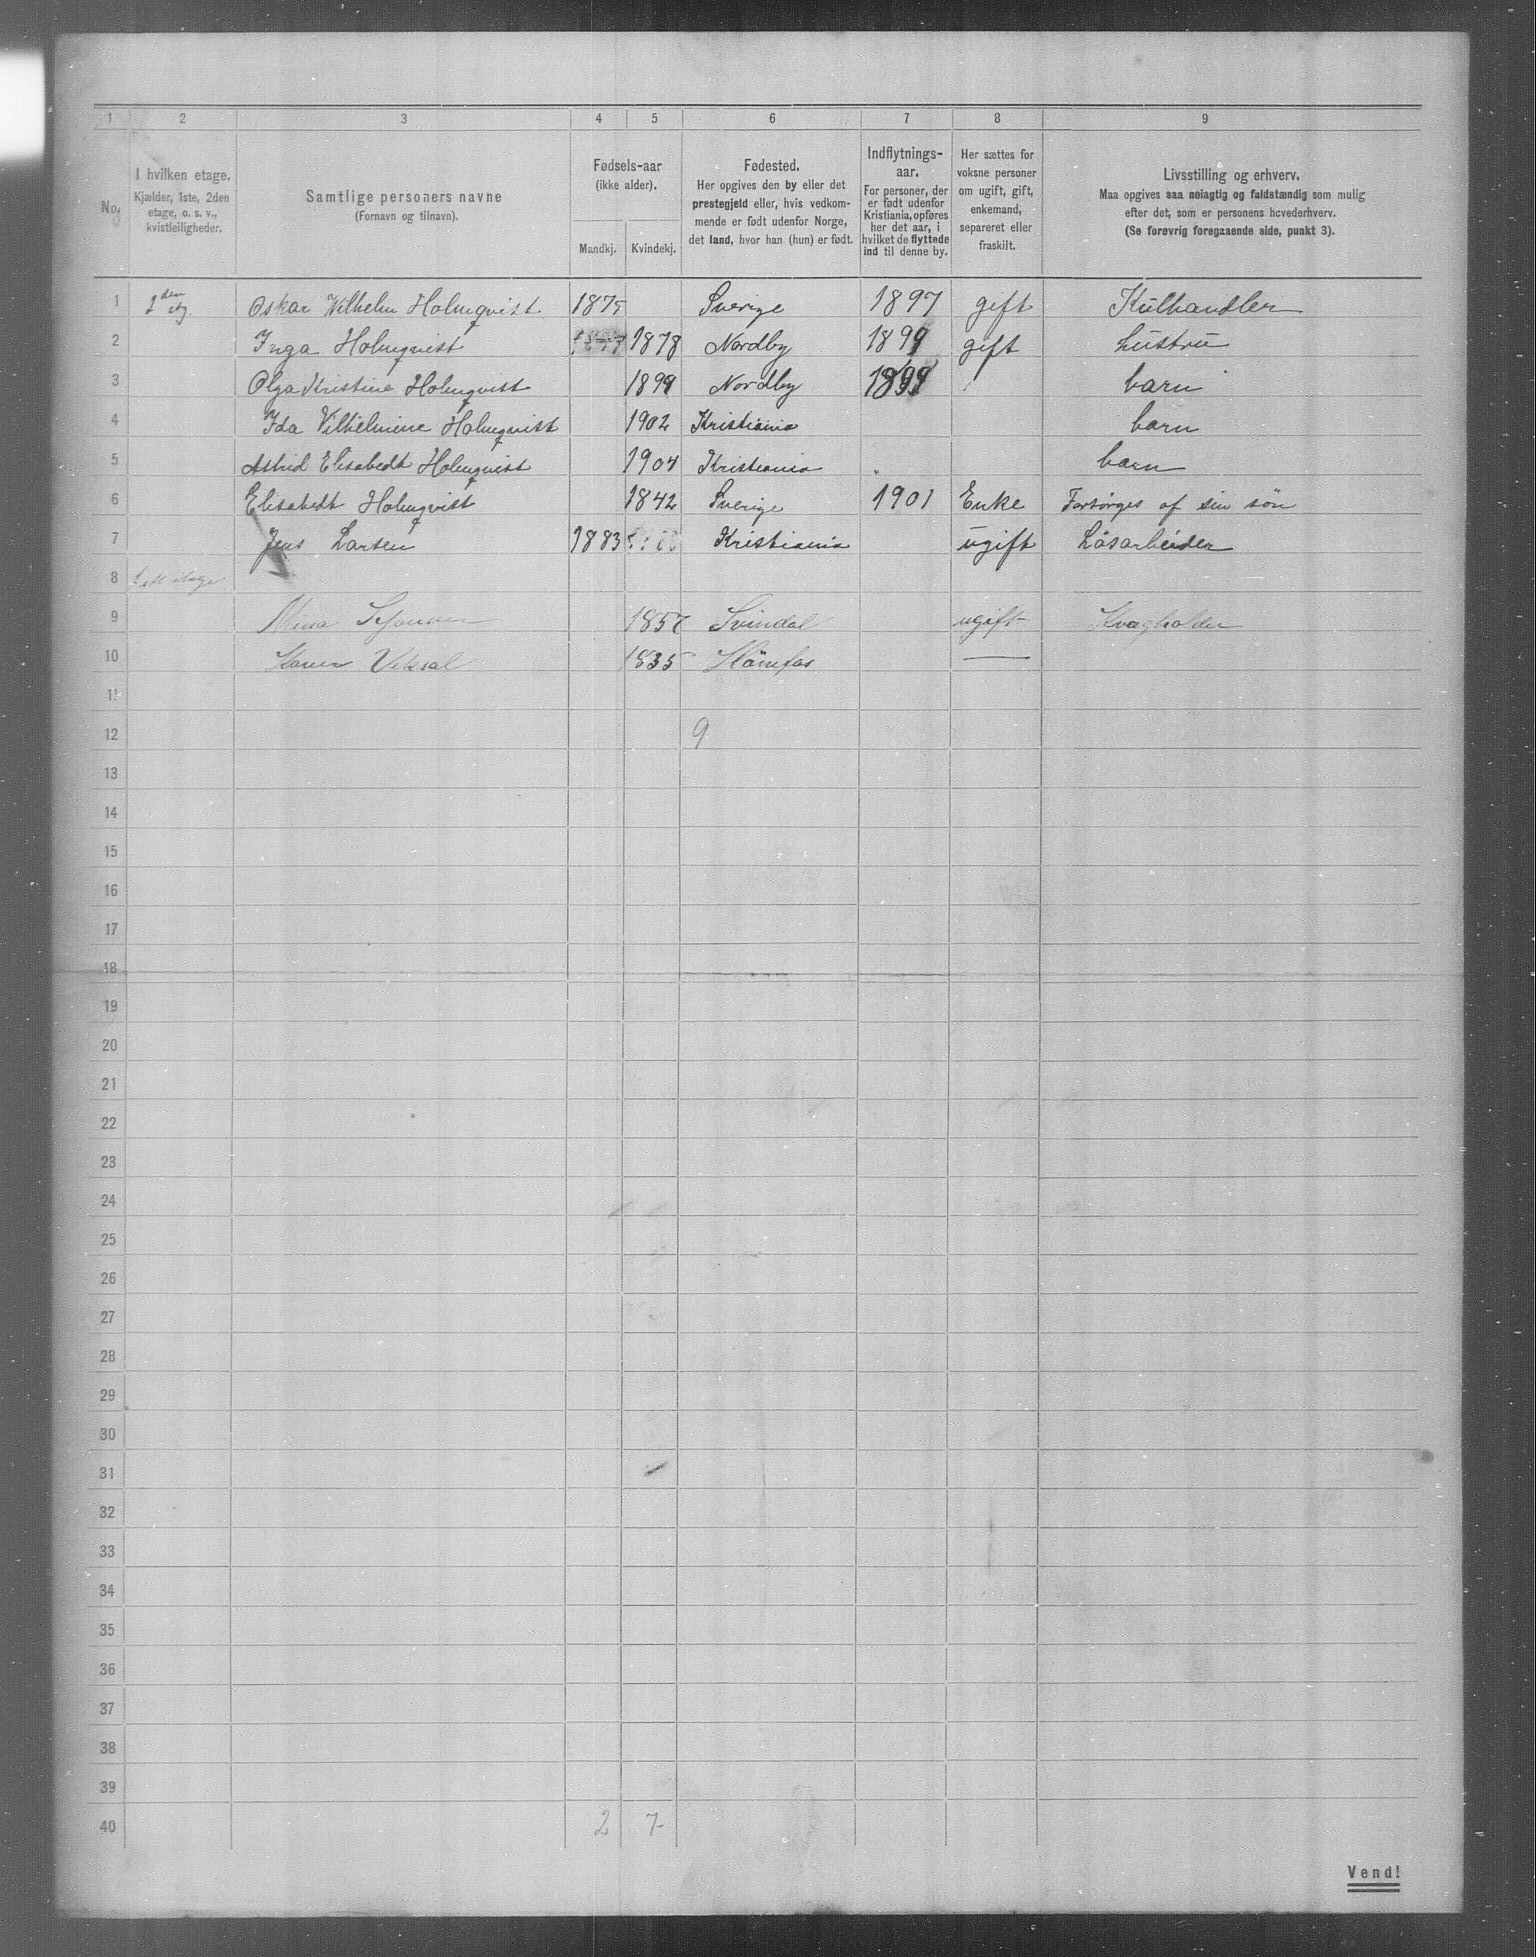 1 2 3 4 5 6 7 8 9
No.
I hvilken etage.
Kjælder, 1ste, 2den
etage, o. s. v.,
kvistleiligheder.
Samtlige personers navne
(Fornavn og tilnavn).
Fødsels-aar
(ikke alder).
Mandkj. Kvindekj.
Fødested.
Her opgives den by eller det
prestegjeld eller, hvis vedkom-
mende er født udenfor Norge,
det land, hvor han (hun) er født.
Indflytnings-
aar.
For personer, der
er født udenfor
Kristiania, opføres
her det aar, i
hvilket de flyttede
ind til denne by.
Her sættes for
voksne personer
om ugift, gift,
enkemand,
separeret eller
fraskilt.
Livsstilling og erhverv.
Maa opgives saa nøiagtig og fuldstændig som mulig
efter det, som er personens hovederhverv.
(Se forøvrig foregaaende side, punkt 3).
1 2den etg. Oskar Vilhelm Holmqvist 1875 Sverige 1897 gift Kulhandler
2 Inga Holmqvist 1878 Nordby 1899 gift Hustru
3 Olga Kristine Holmqvist 1899 Nordby 1899 barn
4 Ida Vilhelmine Holmqvist 1902 Kristiania barn
5 Astrid Elisabedt Holmqvist 1904 Kristiania barn
6 Elisabedt Holmqvist 1842 Sverige 1901 Enke Forsörges af sin sön
7 Jens Larsen 1883 Kristiania ugift Lösarbeider
8 etage
9 1857 Svindal ugift
10 Karen 1835 —
11
12 9
13
14
15
16
17
18
19
20
21
22
23
24
25
26
27
28
29
30
31
32
33
34
35
36
37
38
39
40 2 7
Vend!